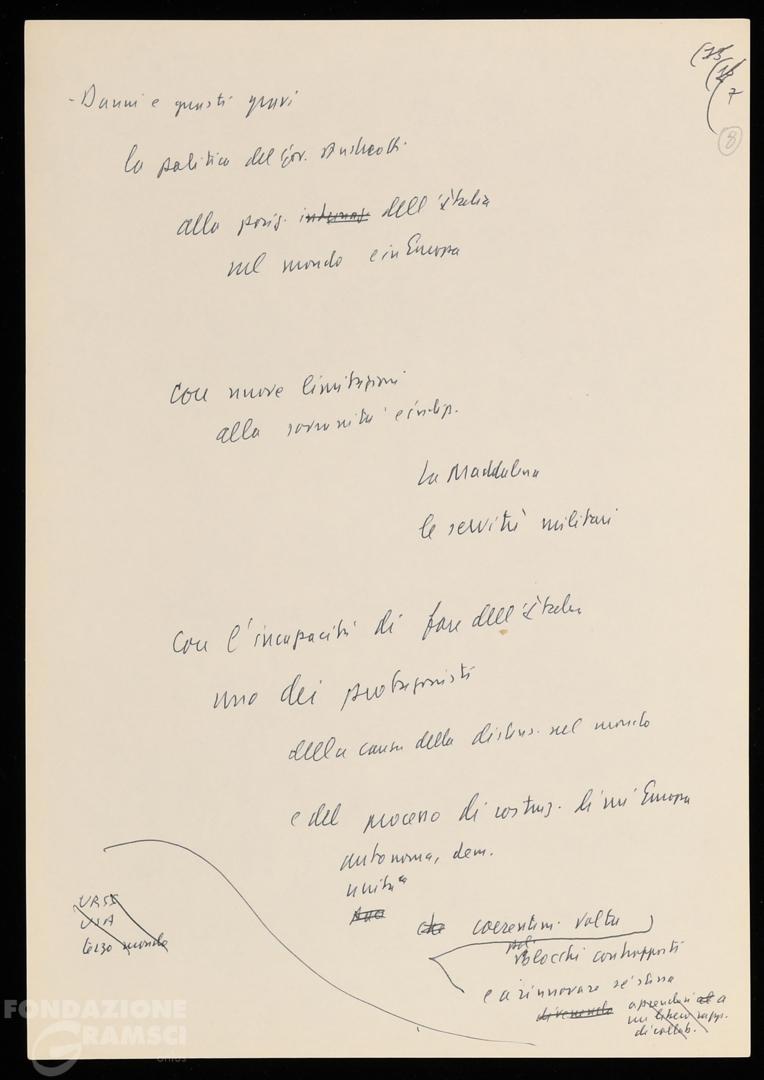 (13
(12
7
8
- Danni e guasti gravi
la politica del Gov. Andreotti
alla posiz. internaz. dell'Italia
nel mondo e in Europa
Con nuove limitazioni
alla sovranità e indip.
La Maddalena
le servitù militari
Con l'incapacità di fare dell'Italia
uno dei protagonisti
della causa della distens. nel mondo
e del processo di costruz. di un'Europa
autonoma, dem.
unita
che coerentem. volta
blocchi contrapposti
e a rinnovare sé stessa
divenendo aprendosi a
un libero rapp.
di collab.
URSS
USA
terzo mondo
FONDAZIONE
GRAMSCI
onlus